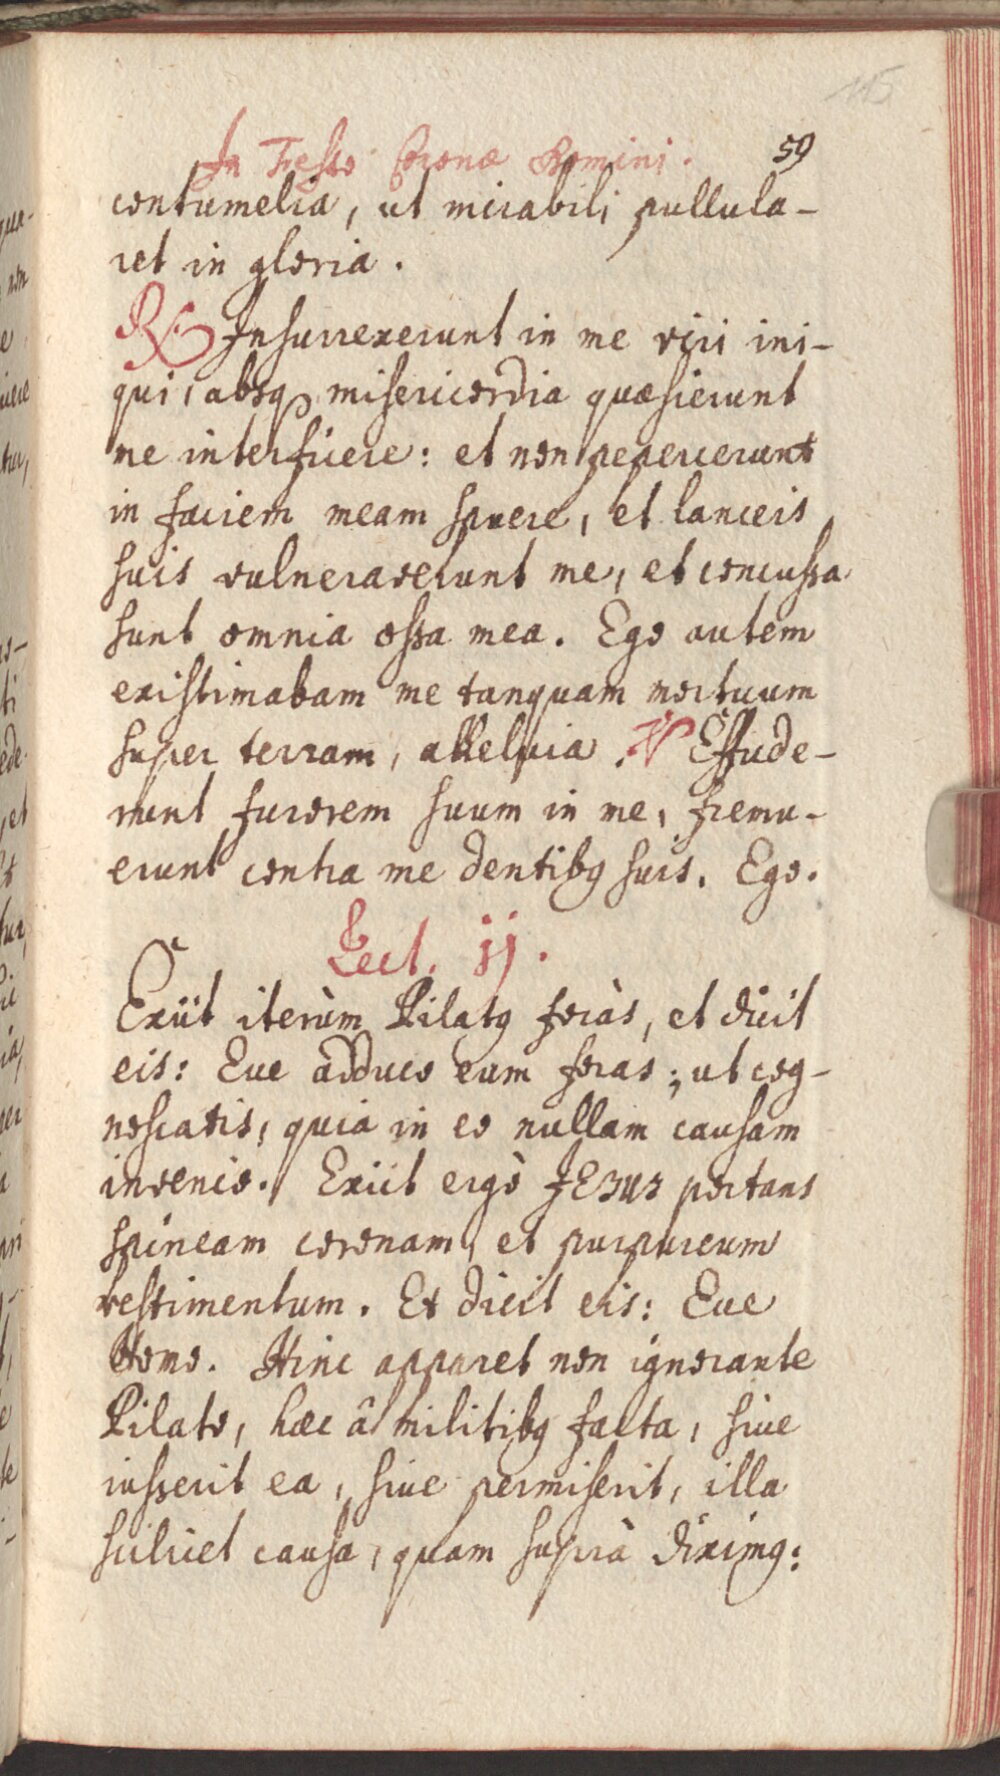 115
In Festo Coronæ Domini. 59
contumelia, ut mirabili pullula-
ret in gloria.
℟ Insurrexerunt in me viri ini-
qui, absq misericordia quæsierunt
me interficere: et non pepercerunt
in faciem meam spuere, et lanceis
suis vulneraverunt me, et concussa
sunt omnia ossa mea. Ego autem
existimabam me tanquam mortuum
super terram, alleluia. ℣ Effude-
runt furorem suum in me, fremu-
erunt contra me dentibq suis. Ego.
Lect. ij.
Exiit iterùm Pilatq foràs, et dicit
eis: Ecce adduco eum foras; ut cog-
noscatis, quia in eo nullam causam
invenio. Exiit ergò JESUS portans
spineam coronam, et purpureum
vestimentum. Et dicit eis: Ecce
Homo. Hinc apparet non ignorante
Pilato, hæc â militibq facta, sive
iusserit ea, sive permiserit, illa
scilicet causa, quam suprà diximq: